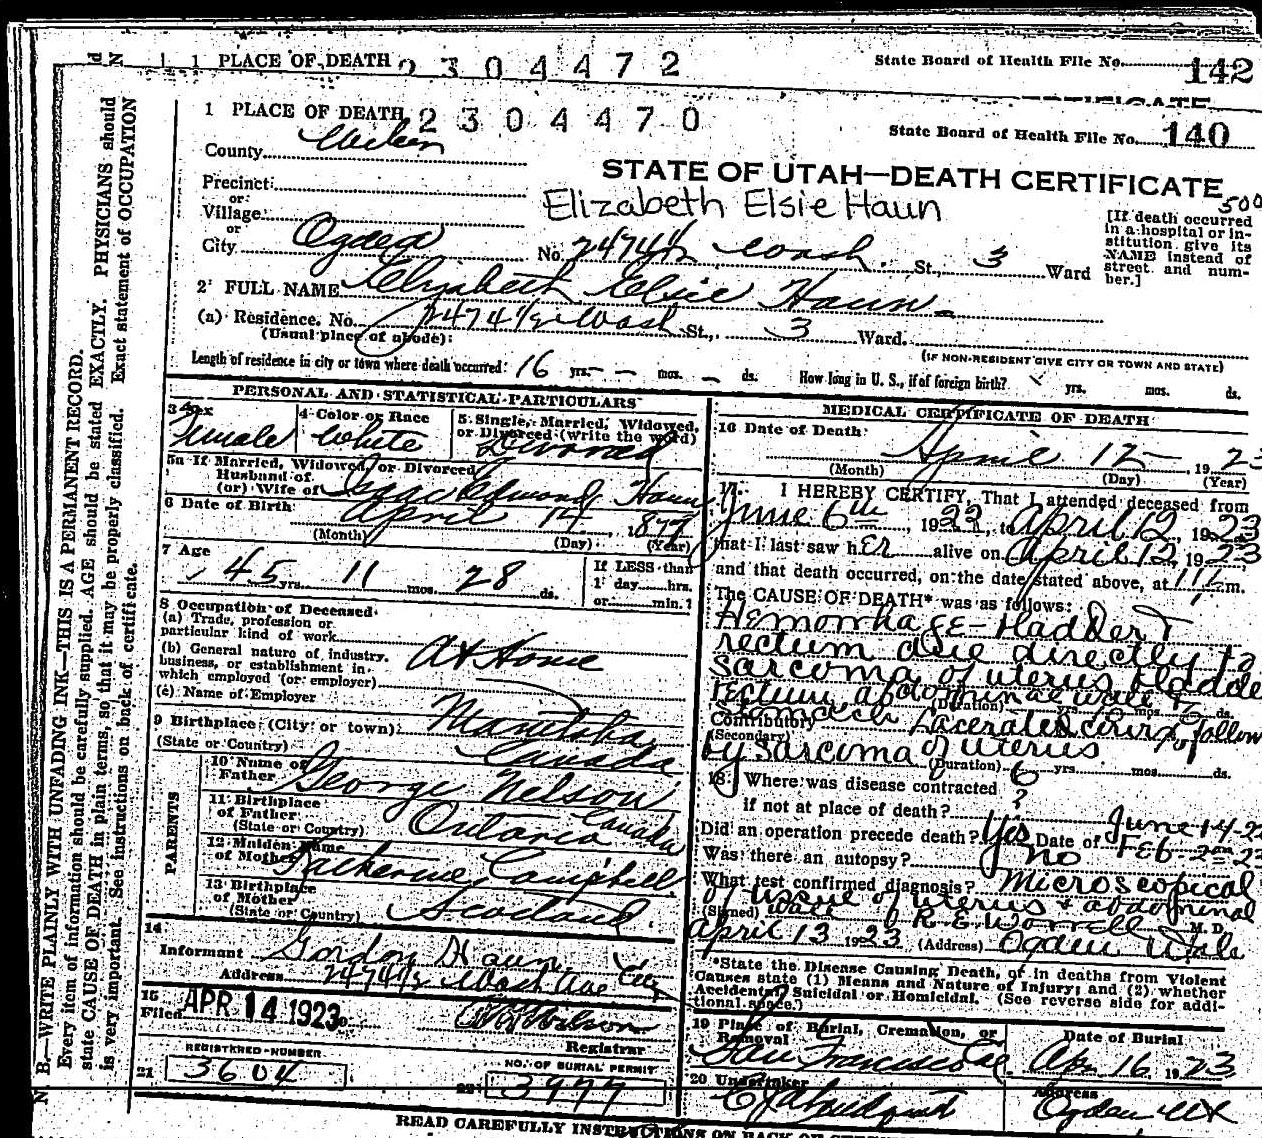 1 PLACE OF DEATH 2304472
State Board of Health File No. 142
1 PLACE OF DEATH 2304470
State Board of Health File No. 140
County Weber
STATE OF UTAH—DEATH CERTIFICATE
Precinct
or
Village
Elizabeth Elsie Haun
500
or
City Ogden No. 2474½ Wash. St., 3 Ward
[If death occurred in a hospital or institution give its NAME instead of street and number.]
2 FULL NAME Elizabeth Elsie Haun
(a) Residence. No. 2474½ Wash St., 3 Ward.
(Usual place of abode)
(IF NON-RESIDENT GIVE CITY OR TOWN AND STATE)
Length of residence in city or town where death occurred 16 yrs. — mos. — ds. How long in U. S., if of foreign birth? yrs. mos. ds.
PERSONAL AND STATISTICAL PARTICULARS
3 Sex
Female
4 Color or Race
White
5 Single, Married, Widowed, or Divorced (write the word)
Divorced
5a If Married, Widowed, or Divorced
Husband of
(or) Wife of Isaac Edmond Haun
6 Date of Birth
April 14, 1877
(Month) (Day) (Year)
7 Age
45 yrs. 11 mos. 28 ds.
If LESS than
1 day hrs.
or min.?
8 Occupation of Deceased
(a) Trade, profession or
particular kind of work
(b) General nature of industry,
business, or establishment in
which employed (or employer)
At Home
(c) Name of Employer
9 Birthplace (City or town) Manitoba
(State or Country) Canada
PARENTS
10 Name of
Father George Nelson
11 Birthplace
of Father
(State or Country) Ontario Canada
12 Maiden Name
of Mother Katherine Campbell
13 Birthplace
of Mother
(State or Country) Scotland.
14
Informant Gordon Haun
Address 2474½ Wash Ave City
15
Filed APR 14 1923
Registrar
REGISTERED NUMBER
21 3604
NO. OF BURIAL PERMIT
22 3977
MEDICAL CERTIFICATE OF DEATH
16 Date of Death
April 12, 1923
(Month) (Day) (Year)
17 I HEREBY CERTIFY, That I attended deceased from
June 6th, 1922, to April 12, 1923
that I last saw her alive on April 12, 1923
and that death occurred, on the date stated above, at m.
The CAUSE OF DEATH* was as follows:
Hemorrhage - Bladder &
rectum due directly to
sarcoma of uterus bladder
rectum abdominal wall &
(Duration) yrs. mos. ds.
Stomach
Contributory Lacerated cervix followed
(Secondary)
by sarcoma of uterus
(Duration) 6 yrs. mos. ds.
18 Where was disease contracted
if not at place of death? ?
Did an operation precede death? Yes Date of June 14-22
Feb-2nd 23
Was there an autopsy? No
What test confirmed diagnosis? Microscopical
of tissue of uterus & abdominal
wall
(Signed) R. E. Worrell M. D.
April 13 1923 (Address) Ogden Utah
*State the Disease Causing Death, or in deaths from Violent Causes state (1) Means and Nature of Injury; and (2) whether Accidental, Suicidal or Homicidal. (See reverse side for additional space.)
19 Place of Burial, Cremation, or
Removal
San Francisco Cal.
Date of Burial
Apr 16, 1923
20 Undertaker
Address
Ogden Ut
N. B.—WRITE PLAINLY WITH UNFADING INK—THIS IS A PERMANENT RECORD.
Every item of information should be carefully supplied. AGE should be stated EXACTLY. PHYSICIANS should
state CAUSE OF DEATH in plain terms, so that it may be properly classified. Exact statement of OCCUPATION
is very important. See instructions on back of certificate.
READ CAREFULLY INSTRUCTIONS ON BACK OF